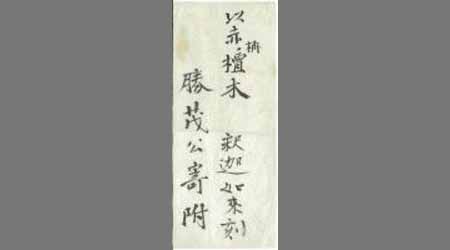 以赤栴檀木 釈迦如来刻
勝茂公寄附